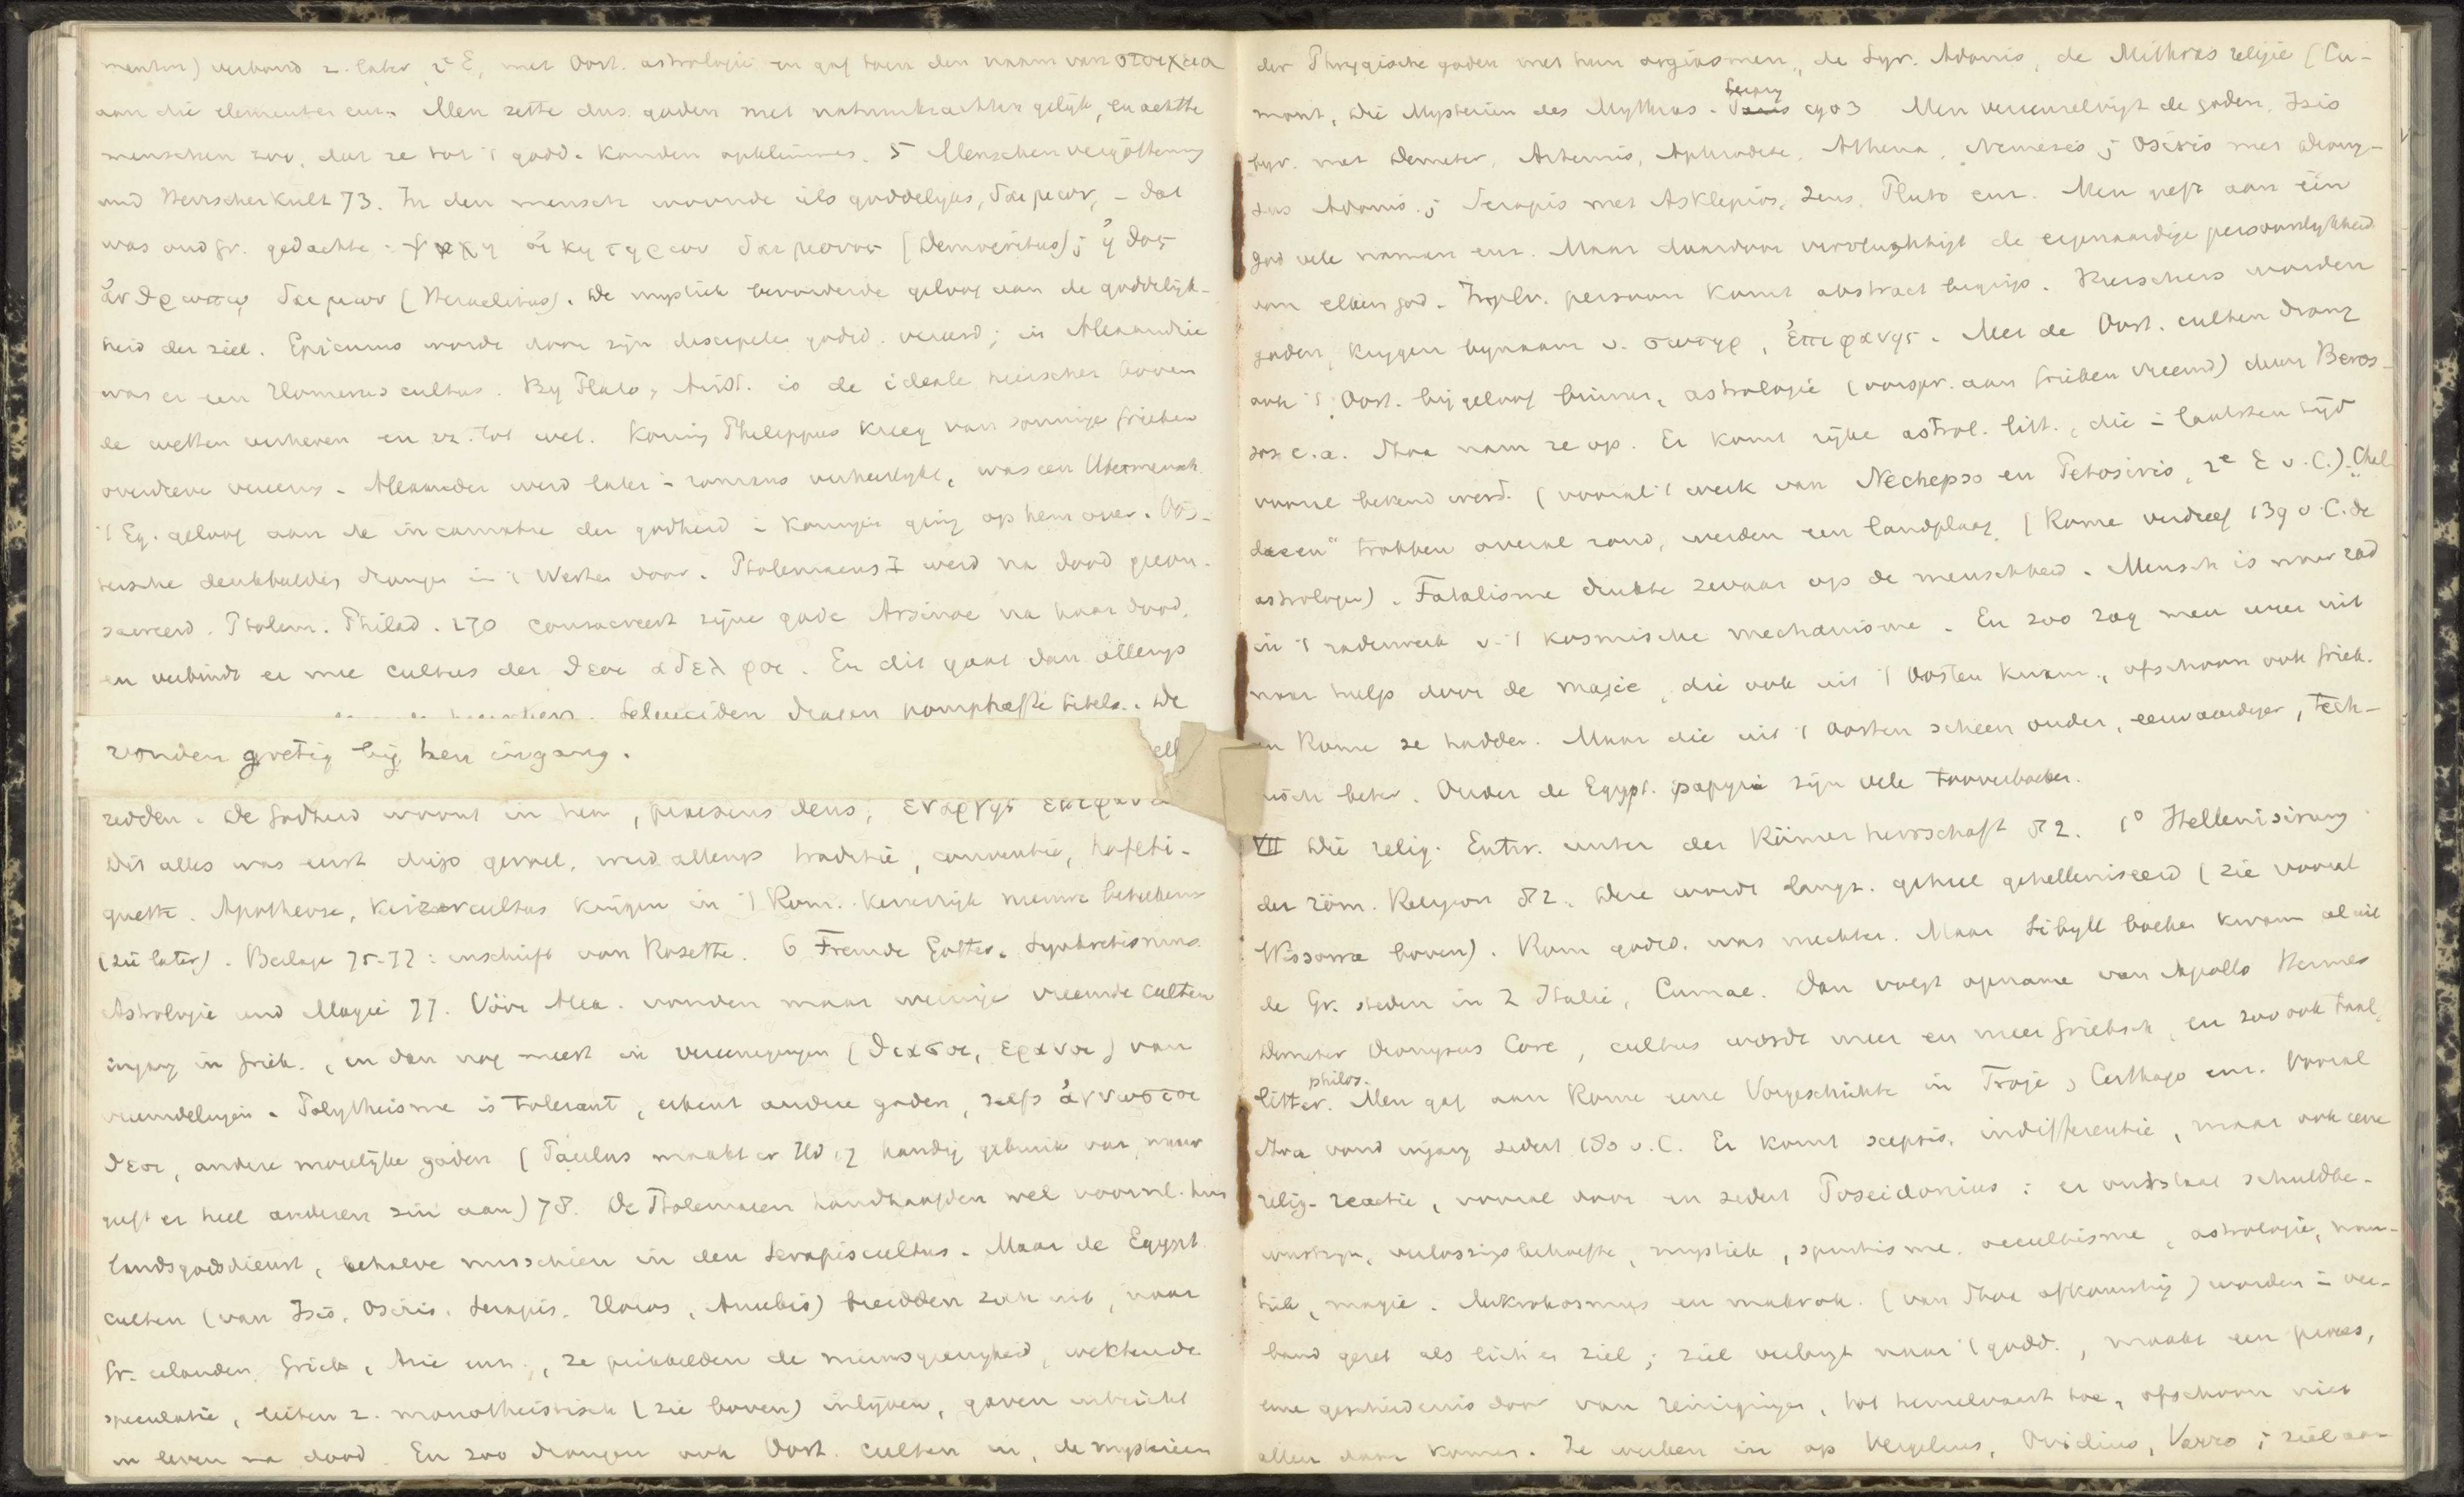 menten) verband z. later 2e E, met Oost. astrologie en gaf toen den naam van στοιχεια
aan die elementen enz. Men zette dus goden met natuurkrachten gelijk, en achtte
menschen zoo, dat ze tot 't godd. konden opklimmen. 5 Menschenvergötterung
und Herrscherkult 73. In den mensch woonde iets goddelijks, δαιμων, - dat
was oud gr. gedachte: ψυχη οἰκητηριον δαιμονος (Democritus); ἠθος
ἀνθρωπῳ δαιμων (Heraclitus). De mystiek bevorderde geloof aan de goddelijk-
heid der ziel. Epicurus werd door zijn discipelen godd. vereerd; in Alexandrie
was er een Homerus cultus. By Plato, Arist. is de ideale heerscher boven
de wetten verheven en zz. tot wet. Koning Philippus kreeg van sommige Grieken
overdreven vereering. Alexander werd later i romans verheerlijkt, was een Übermensch.
't Eg. geloof aan de incarnatie der godheid i koningen ging op hem over. Oos-
tersche denkbeelden drongen in 't Westen door. Ptolemaeus I werd na dood gecon-
sacreerd. Ptolem. Philad. 270 consacreert zijne gade Arsinoe na haar dood,
en verbindt er mee cultus der θεοι αδελφοι. En dit gaat dan allengs
heerschers. Seleuciden dragen pomphafte titels. De
vonden gretig bij hen ingang.
redden. De Godheid woont in hen, praesens deus, εναργης επιφαν
Dit alles was eerst diep gevoel, werd allengs traditie, conventie, hofeti-
quette. Apotheose, keizercultus krijgen in 't Rom. keizerrijk nieuwe beteekenis
(zie later). Beilage 75-77: inschrift van Rosette. 6 Fremde Götter. Synkretismus.
Astrologie und Magie 77. Vóór Alex. vonden maar weinige vreemde culten
ingang in Griek., en dan nog meest in vereenigingen (θιασοι, ερανοι) van
vreemdelingen. Polytheisme is tolerant, erkent andere goden, zelfs ἀγνωστοι
θεοι, andere mogelijke goden (Paulus maakt er Hd 17 handig gebruik van, maar
geeft er heel anderen zin aan) 78. De Ptolemaeen handhaafden wel voornl. hun
landsgodsdienst, behalve misschien in den Serapiscultus. Maar de Egypt.
culten (van Isis, Osiris, Serapis, Horus, Anubis) breidden zich uit, naar
Gr. eilanden, Griek., Azie enz., ze prikkelden de nieuwsgierigheid, wekten de
speculatie, lieten z. monotheistisch (zie boven) inlijven, gaven uitzicht
in leven na dood. En zoo drongen ook Oost. culten in, de mysterien
der Phrygische goden met hun orgiasmen, de Syr. Adonis, de Mithras religie (Cu-
mont, Die Mysterien des Mythras. Leipzig 1903. Men vereenzelvigt de goden. Isis
byv. met Demeter, Artemis, Aphrodite, Athena, Nemesis; Osiris met Diony-
sus Adonis; Serapis met Asklepios, Zeus, Pluto enz. Men geeft aan één
god vele namen enz. Maar daardoor vervluchtigt de eigenaardige persoonlijkheid
van elken god. In pl. v. persoon komt abstract begrip. Heerschers worden
goden, krijgen bynaam v. σωτηρ, ἐπιφανης. Met de Oost. culten drong
ook 't Oost. bijgeloof binnen, astrologie (oorspr. aan Grieken vreemd) door Beros-
sos e.a. Stoa nam ze op. Er komt rijke astrol. litt., die i laatsten tijd
vooral bekend werd. (vooral 't werk van Nechepso en Petosiris, 2e E v. C.). „Chal-
daeen” trokken overal rond, werden een landplaag. (Rome verdreef 139 v. C. de
astrologen). Fatalisme drukte zwaar op de menschheid. Mensch is maar rad
in 't raderwerk v. 't kosmische mechanisme. En zoo zag men weer uit
naar hulp door de magie, die ook uit 't Oosten kwam, ofschoon ook Griek.
en Rome ze hadden. Maar die uit 't Oosten scheen ouder, eerwaardiger, tech-
nisch beter. Onder de Egypt. papyri zijn vele tooverboeken.
VII Die relig. Entw. unter der Römerherrschaft 82. 1° Hellenisirung
der röm. Religion 82. Deze wordt langz. geheel gehelleniseerd (zie vooral
Wissowa boven). Rom. godsd. was nuchter. Maar Sibyll. boeken kwamen al uit
de Gr. steden in Z Italie, Cumae. Dan volgt opname van Apollo Hermes
Demeter Dionysus Core, cultus wordt meer en meer Grieksch, en zoo ook taal,
litter. philos. Men gaf aan Rome eene Vorgeschichte in Troje, Carthago enz. Vooral
Stoa vond ingang sedert 180 v. C. Er komt scepsis, indifferentie, maar ook eene
relig. reactie, vooral door en sedert Poseidonius: er ontstaat schuldbe-
wustzijn, verlossingsbehoefte, mystiek, spiritisme, occultisme, astrologie, man-
tiek, magie. Mikrokosmus en makrok. (van Stoa afkomstig) worden i ver-
band gezet als lich. en ziel; ziel verlangt naar 't godd., maakt een proces,
eene geschiedenis door van reinigingen, tot hemelvaart toe, ofschoon niet
allen daar komen. Ze werken in op Vergilius, Ovidius, Varro; ziel aan